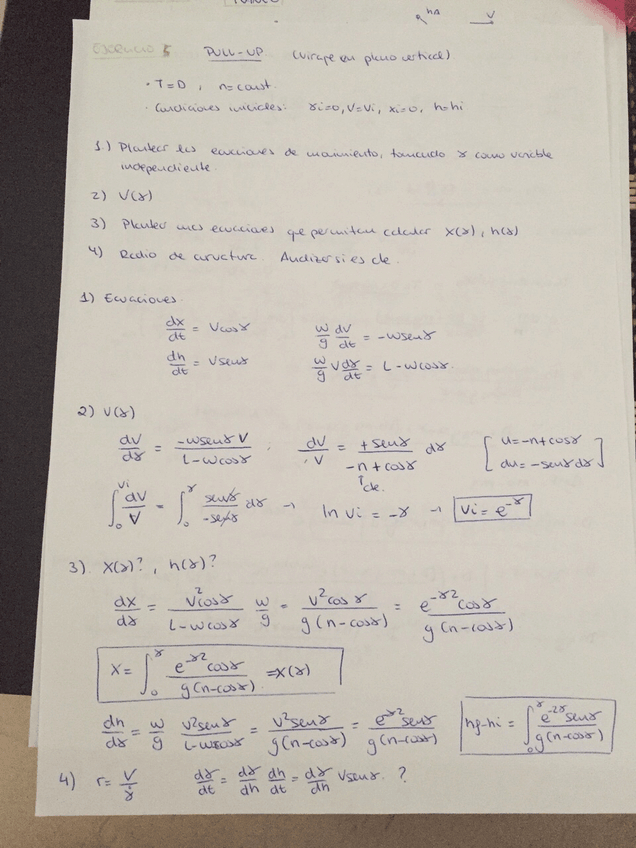 EJERCICIO 5 PULL-UP (viraje en plano vertical)
· T=D , n=const.
· Condiciones iniciales: γi=0, V=Vi, xi=0, h=hi
1.) Plantear las ecuaciones de movimiento, tomando γ como variable
independiente.
2) V(γ)
3) Plantear unas ecuaciones que permitan calcular X(γ), h(γ)
4) Radio de curvatura. Analizar si es cte.
1) Ecuaciones.
dx/dt = Vcosγ   w/g dV/dt = -wsenγ
dh/dt = Vsenγ   w/g V dγ/dt = L-wcosγ.
2) V(γ)
dV/dγ = -wsenγ V / L-wcosγ ; dV/V = +senγ / -n+cosγ dγ [ u=-n+cosγ
cte. du=-senγdγ ]
∫₀^Vi dV/V = ∫₀^γ senγ/-senγ dγ → ln Vi = -γ → Vi = e^-γ
3) X(γ)?, h(γ)?
dx/dγ = V²cosγ / L-wcosγ w/g = V²cosγ / g(n-cosγ) = e^-γ2 cosγ / g(n-cosγ)
X = ∫₀^γ e^-γ2 cosγ / g(n-cosγ) = X(γ)
dh/dγ = w/g V²senγ / L-wcosγ = V²senγ / g(n-cosγ) = e^-γ2 senγ / g(n-cosγ) hf-hi = ∫₀^γ e^-2γ senγ / g(n-cosγ)
4) r = V/γ̇ dγ/dt = dγ/dh dh/dt = dγ/dh Vsenγ. ?